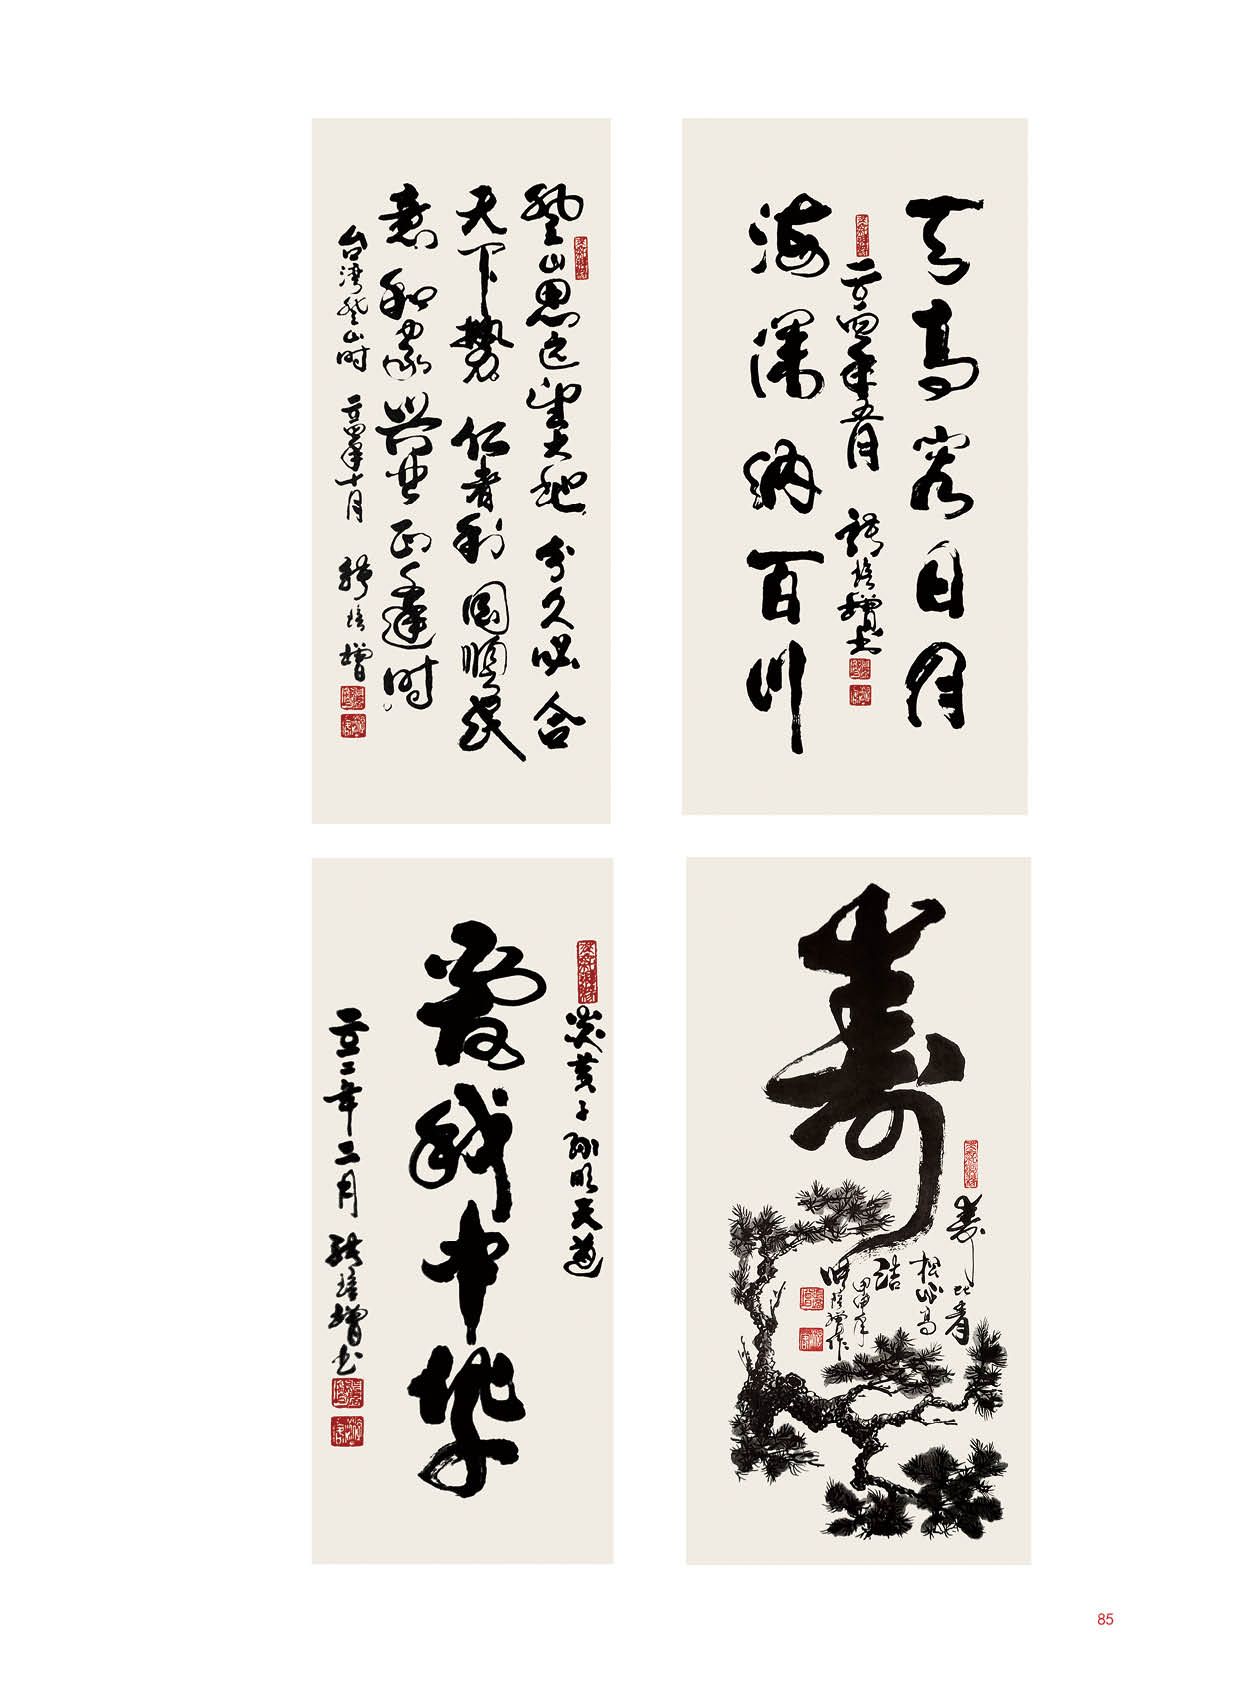 登山思远望大地 分久必合
天下势 仁者利国顺民
意 和家兴世正逢时
台湾登山时 二〇〇四年十月 张培增
天高容日月
海深纳百川
二〇〇四年五月 张培增书
炎黄子孙天道
爱我中华
二〇〇二年二月 张培增书
寿
寿比青
松心高
洁
甲申年
培增作
85